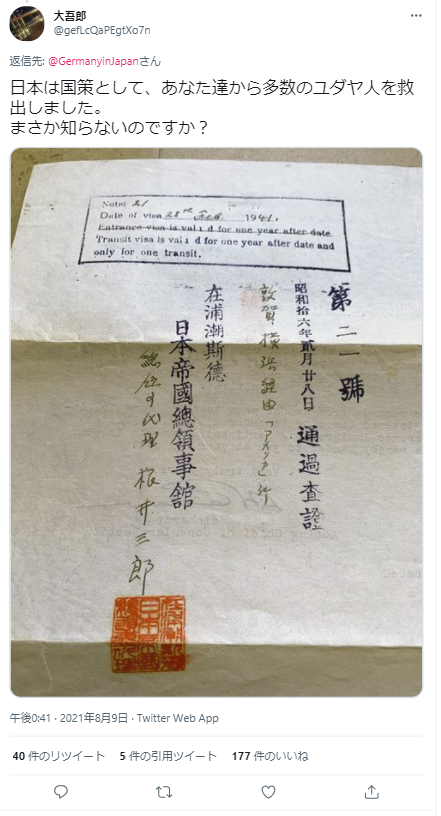 大吾郎
@gefLcQaPEgtXo7n
返信先: @GermanyinJapanさん
日本は国策として、あなた達から多数のユダヤ人を救
出しました。
まさか知らないのですか？
Note: 21
Date of visa 28th Feb. 1941.
Entrance visa is vali d for one year after date.
Transit visa is vali d for one year after date and
only for one transit.
第二一號
通過査證
昭和拾六年貳月廿八日
敦賀横浜経由「アメリカ」行
在浦潮斯德
日本帝國總領事館
總領事代理 根井三郎
午後0:41 · 2021年8月9日 · Twitter Web App
40 件のリツイート 5 件の引用ツイート 177 件のいいね